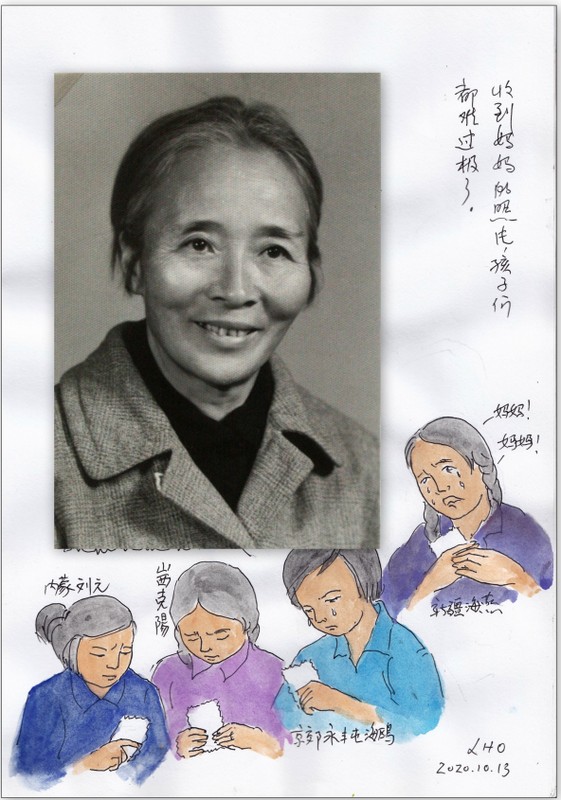 收到妈妈的照片,孩子们
都难过极了.
妈妈!
妈妈!
新疆海燕
内蒙刘元
山西克陽
京郊永丰屯海鸥
LHO
2020.10.13